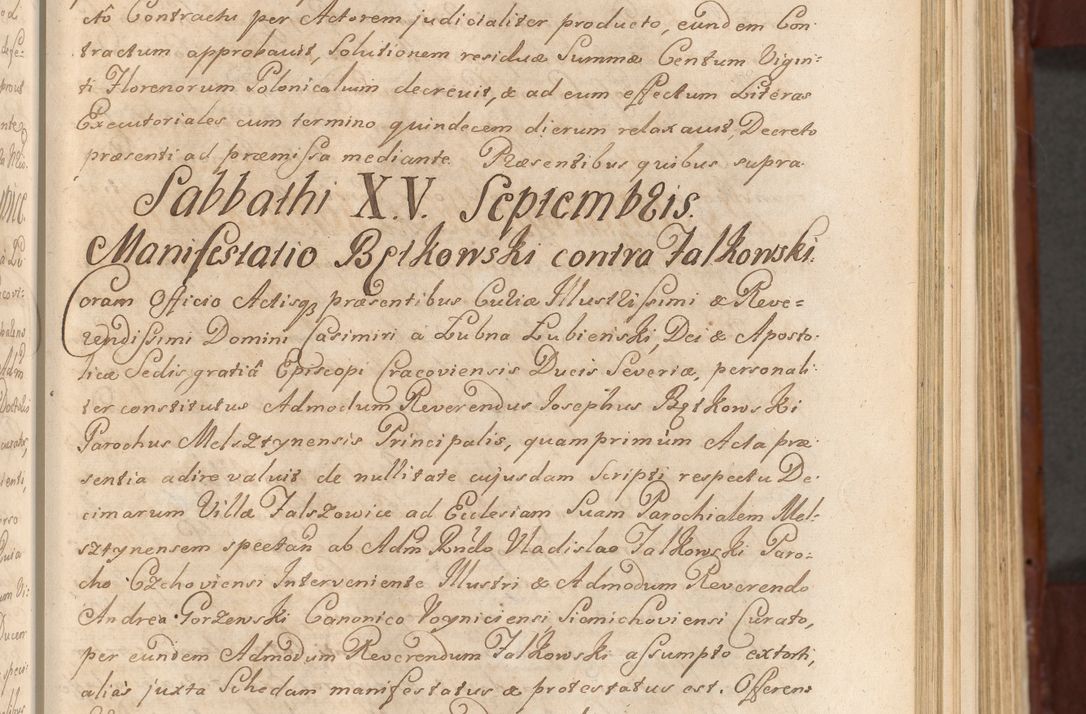 cto Contractu per Actorem judicialiter producto, eundem Con-
tractum approbavit, Solutionem residuæ Summæ Centum Vigin-
ti Florenorum Polonicalium decrevit, & ad eum effectum Literas
Executoriales cum termino quindecem dierum relaxavit, Decreto
præsenti ad præmissa mediante. Præsentibus quibus supra.
Sabbathi XV. Septembris.
Manifestatio Bętkowski contra Falkowski.
Coram Officio Actisqꝫ præsentibus Curiæ Illustrissimi & Reve=
rendissimi Domini Casimiri a Łubna Łubieński, Dei & Aposto-
licæ Sedis gratiâ Episcopi Cracoviensis Ducis Severiæ, personali-
ter constitutus Admodum Reverendus Josephus Bętkowski
Parochus Melsztynensis Principalis, quamprimum Acta præ-
sentia adire valuit de nullitate cujusdam Scripti respectu De-
cimarum Villæ Falszowice ad Ecclesiam Suam Parochialem Mel-
sztynensem spectan ab Adm Rndo Vladislao Falkowski Paro-
cho Czchoviensi Interveniente Illustri & Admodum Reverendo
Andrea Gorzewski Canonico Voyniciensi Siemichoviensi Curato,
per eundem Admodum Reverendum Falkowski assumpto extorti,
alias juxta Schedam manifestatus & protestatus est. Offerens